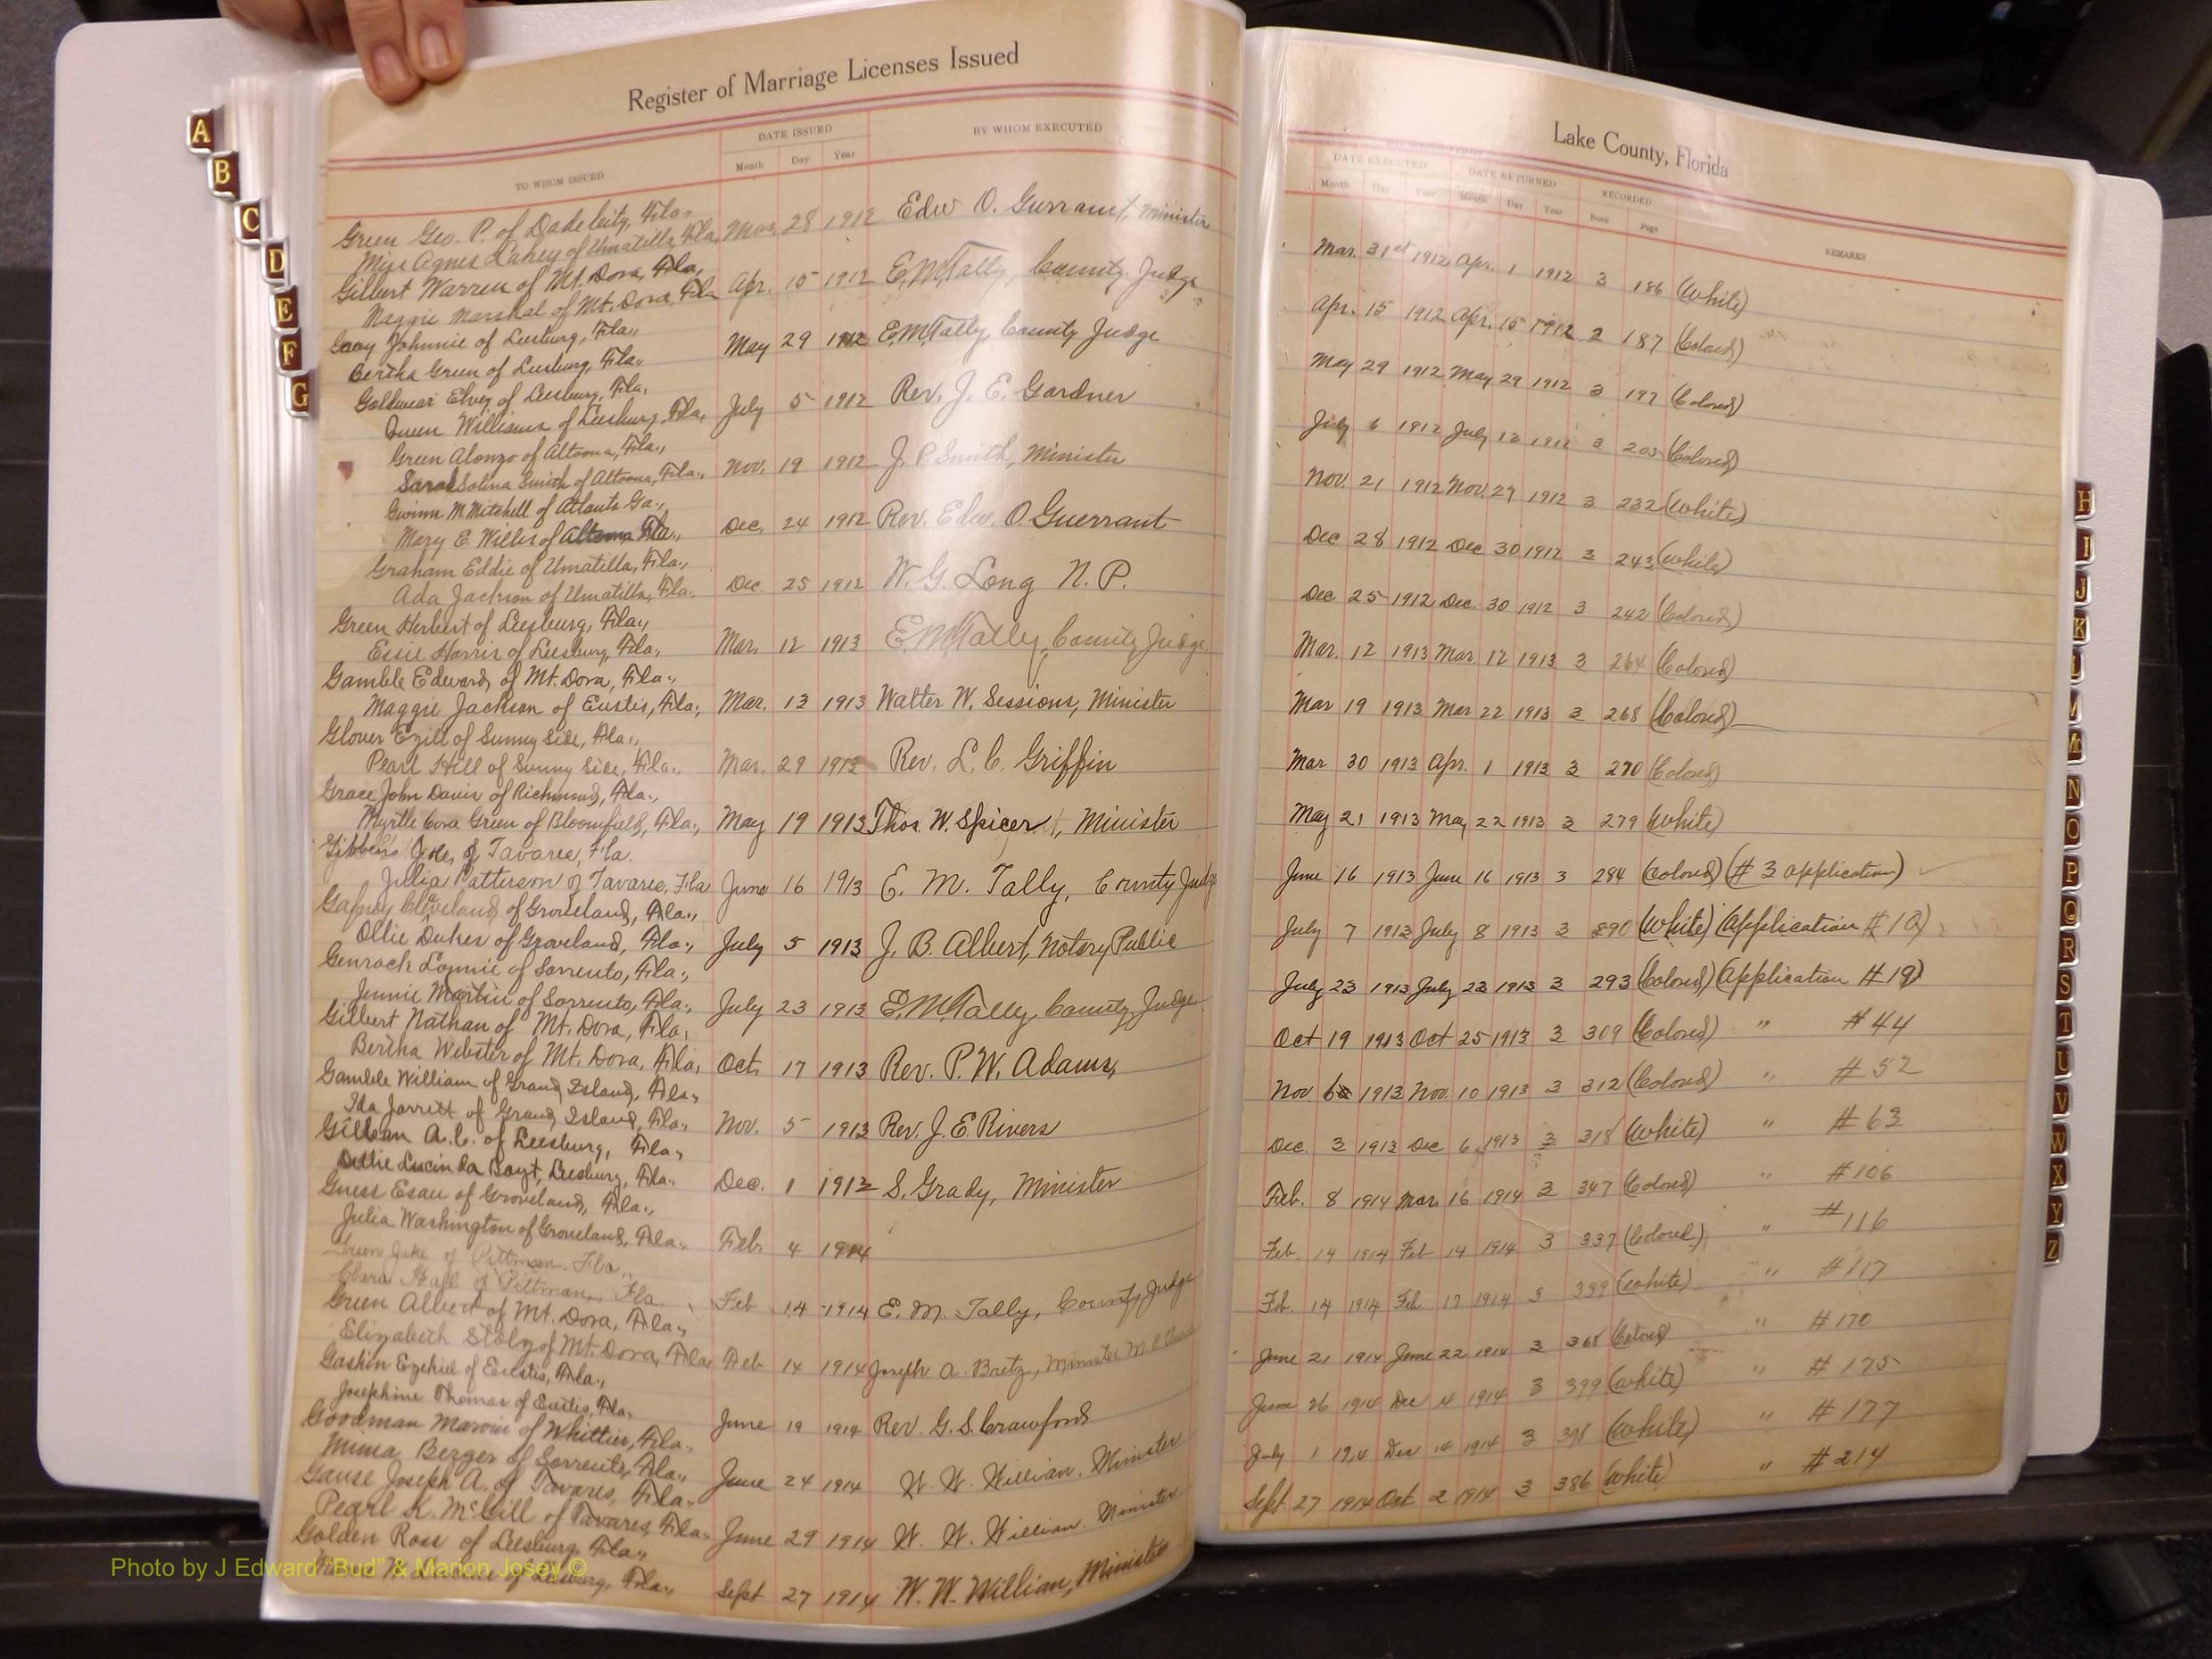 Register of Marriage Licenses Issued
TO WHOM ISSUED
DATE ISSUED
Month Day Year
BY WHOM EXECUTED
Green Geo. P. of Dade City, Fla. Mar. 28 1912 Edw O. Gurrant, Minister
Miss Agnes Lahey of Umatilla, Fla.
Gilbert Warren of Mt. Dora, Fla. Apr. 15 1912 E.M. Tally, County Judge
Maggie Marshal of Mt. Dora, Fla
Johnnie of Leesburg, Fla., May 29 1912 E.M. Tally, County Judge
Bertha Green of Leesburg, Fla.
Elvey of Leesburg, Fla. July 5 1912 Rev. J. E. Gardner
Queen Williams of Leesburg, Fla.
Green Alonzo of Altoona, Fla., Nov. 19 1912 J. P. Smith, Minister
Sarah Solina Smith of Altoona, Fla.,
Gwinn M. Mitchell of Atlanta Ga., Dec. 24 1912 Rev. Edw. O. Guerrant
Mary E. Willis of Altoona Fla.,
Graham Eddie of Umatilla, Fla., Dec. 25 1912 W. G. Long N. P.
Ada Jackson of Umatilla, Fla.
Green Herbert of Leesburg, Fla., Mar. 12 1913 E.M. Tally, County Judge
Essie Harris of Leesburg, Fla.,
Gamble Edward, of Mt. Dora, Fla., Mar. 13 1913 Walter W. Sessions, Minister
Maggie Jackson of Eustis, Fla.,
Glover Ezill of Sunny Side, Fla., Mar. 29 1913 Rev. L. C. Griffin
Pearl Hill of Sunny Side, Fla.,
Grace John Davis of Richmond, Fla., May 19 1913 Thos. W. Spicer, Minister
Myrtle Cora Green of Bloomfield, Fla.,
Gibbens of Tavares, Fla. June 16 1913 E. M. Tally, County Judge
Julia Patterson of Tavares, Fla
Gafney Cleveland of Groveland, Fla., July 5 1913 J. B. Albert, Notary Public
Ollie Dukes of Groveland, Fla.,
of Sorrento, Fla., July 23 1913 E.M. Tally, County Judge
Jennie Martin of Sorrento, Fla.,
Gilbert Nathan of Mt. Dora, Fla, Oct. 17 1913 Rev. P. W. Adams,
Bertha Webster of Mt. Dora, Fla,
Gamble William of Grand Island, Fla., Nov. 5 1913 Rev. J. E. Rivers
Ida Jarritt of Grand Island, Fla.,
A. C. of Leesburg, Fla., Dec. 1 1913 S. Grady, Minister
Lucinda Leesburg, Fla.,
Guess Esau of Groveland, Fla., Feb. 4 1914
Julia Washington of Groveland, Fla.,
Green Jake of Pittman, Fla., Feb 14 1914 E. M. Tally, County Judge
Clara Hall of Pittman, Fla.
Green Albert of Mt. Dora, Fla., Feb 14 1914 Joseph A. Bretz, Minister
Elizabeth of Mt. Dora, Fla
Gaskin Ezekiel of Eustis, Fla., June 19 1914 Rev. G. S. Crawford
Josephine Thomas of Eustis, Fla.
Goodman of Whittier, Fla., June 24 1914 W. W. Willian, Minister
Minna Berger of Sorrento, Fla.,
Gause Joseph A. of Tavares, Fla. June 29 1914 W. W. Willian, Minister
Pearl K. McGill of Tavares, Fla.
Golden Ross of Leesburg, Fla., Sept 27 1914 W. W. Willian, Minister
of Leesburg, Fla.,
Lake County, Florida
DATE EXECUTED DATE RETURNED RECORDED
Month Day Year Month Day Year Book Page REMARKS
Mar. 31st 1912 Apr. 1 1912 3 186 (White)
Apr. 15 1912 Apr. 15 1912 3 187 (Colored)
May 29 1912 May 29 1912 3 197 (Colored)
July 6 1912 July 12 1912 3 203 (Colored)
Nov. 21 1912 Nov. 27 1912 3 232 (White)
Dec 28 1912 Dec 30 1912 3 243 (White)
Dec 25 1912 Dec. 30 1912 3 242 (Colored)
Mar. 12 1913 Mar 12 1913 3 264 (Colored)
Mar 19 1913 Mar 22 1913 3 268 (Colored)
Mar 30 1913 Apr. 1 1913 3 270 (Colored)
May 21 1913 May 22 1913 3 279 (White)
June 16 1913 June 16 1913 3 284 (Colored) (# 3 application)
July 7 1913 July 8 1913 3 290 (White) (Application # 10)
July 23 1913 July 23 1913 3 293 (Colored) (Application # 19)
Oct 19 1913 Oct 25 1913 3 309 (Colored) " # 44
Nov. 6 1913 Nov. 10 1913 3 312 (Colored) " # 52
Dec. 3 1913 Dec 6 1913 3 318 (White) " # 63
Feb. 8 1914 Mar. 16 1914 3 347 (Colored) " # 106
Feb. 14 1914 Feb 14 1914 3 337 (Colored) " # 116
Feb. 14 1914 Feb 17 1914 3 339 (White) " # 117
June 21 1914 June 22 1914 3 368 (Colored) " # 170
June 26 1914 Dec 14 1914 3 399 (White) " # 175
July 1 1914 Dec 14 1914 3 398 (White) " # 177
Sept 27 1914 Oct 2 1914 3 386 (White) " # 214
A
B
C
D
E
F
G
H
I
J
K
L
M
Mc
N
O
P
Q
R
S
T
U
V
W
X
Y
Z
Photo by J Edward "Bud" & Marion Josey ©